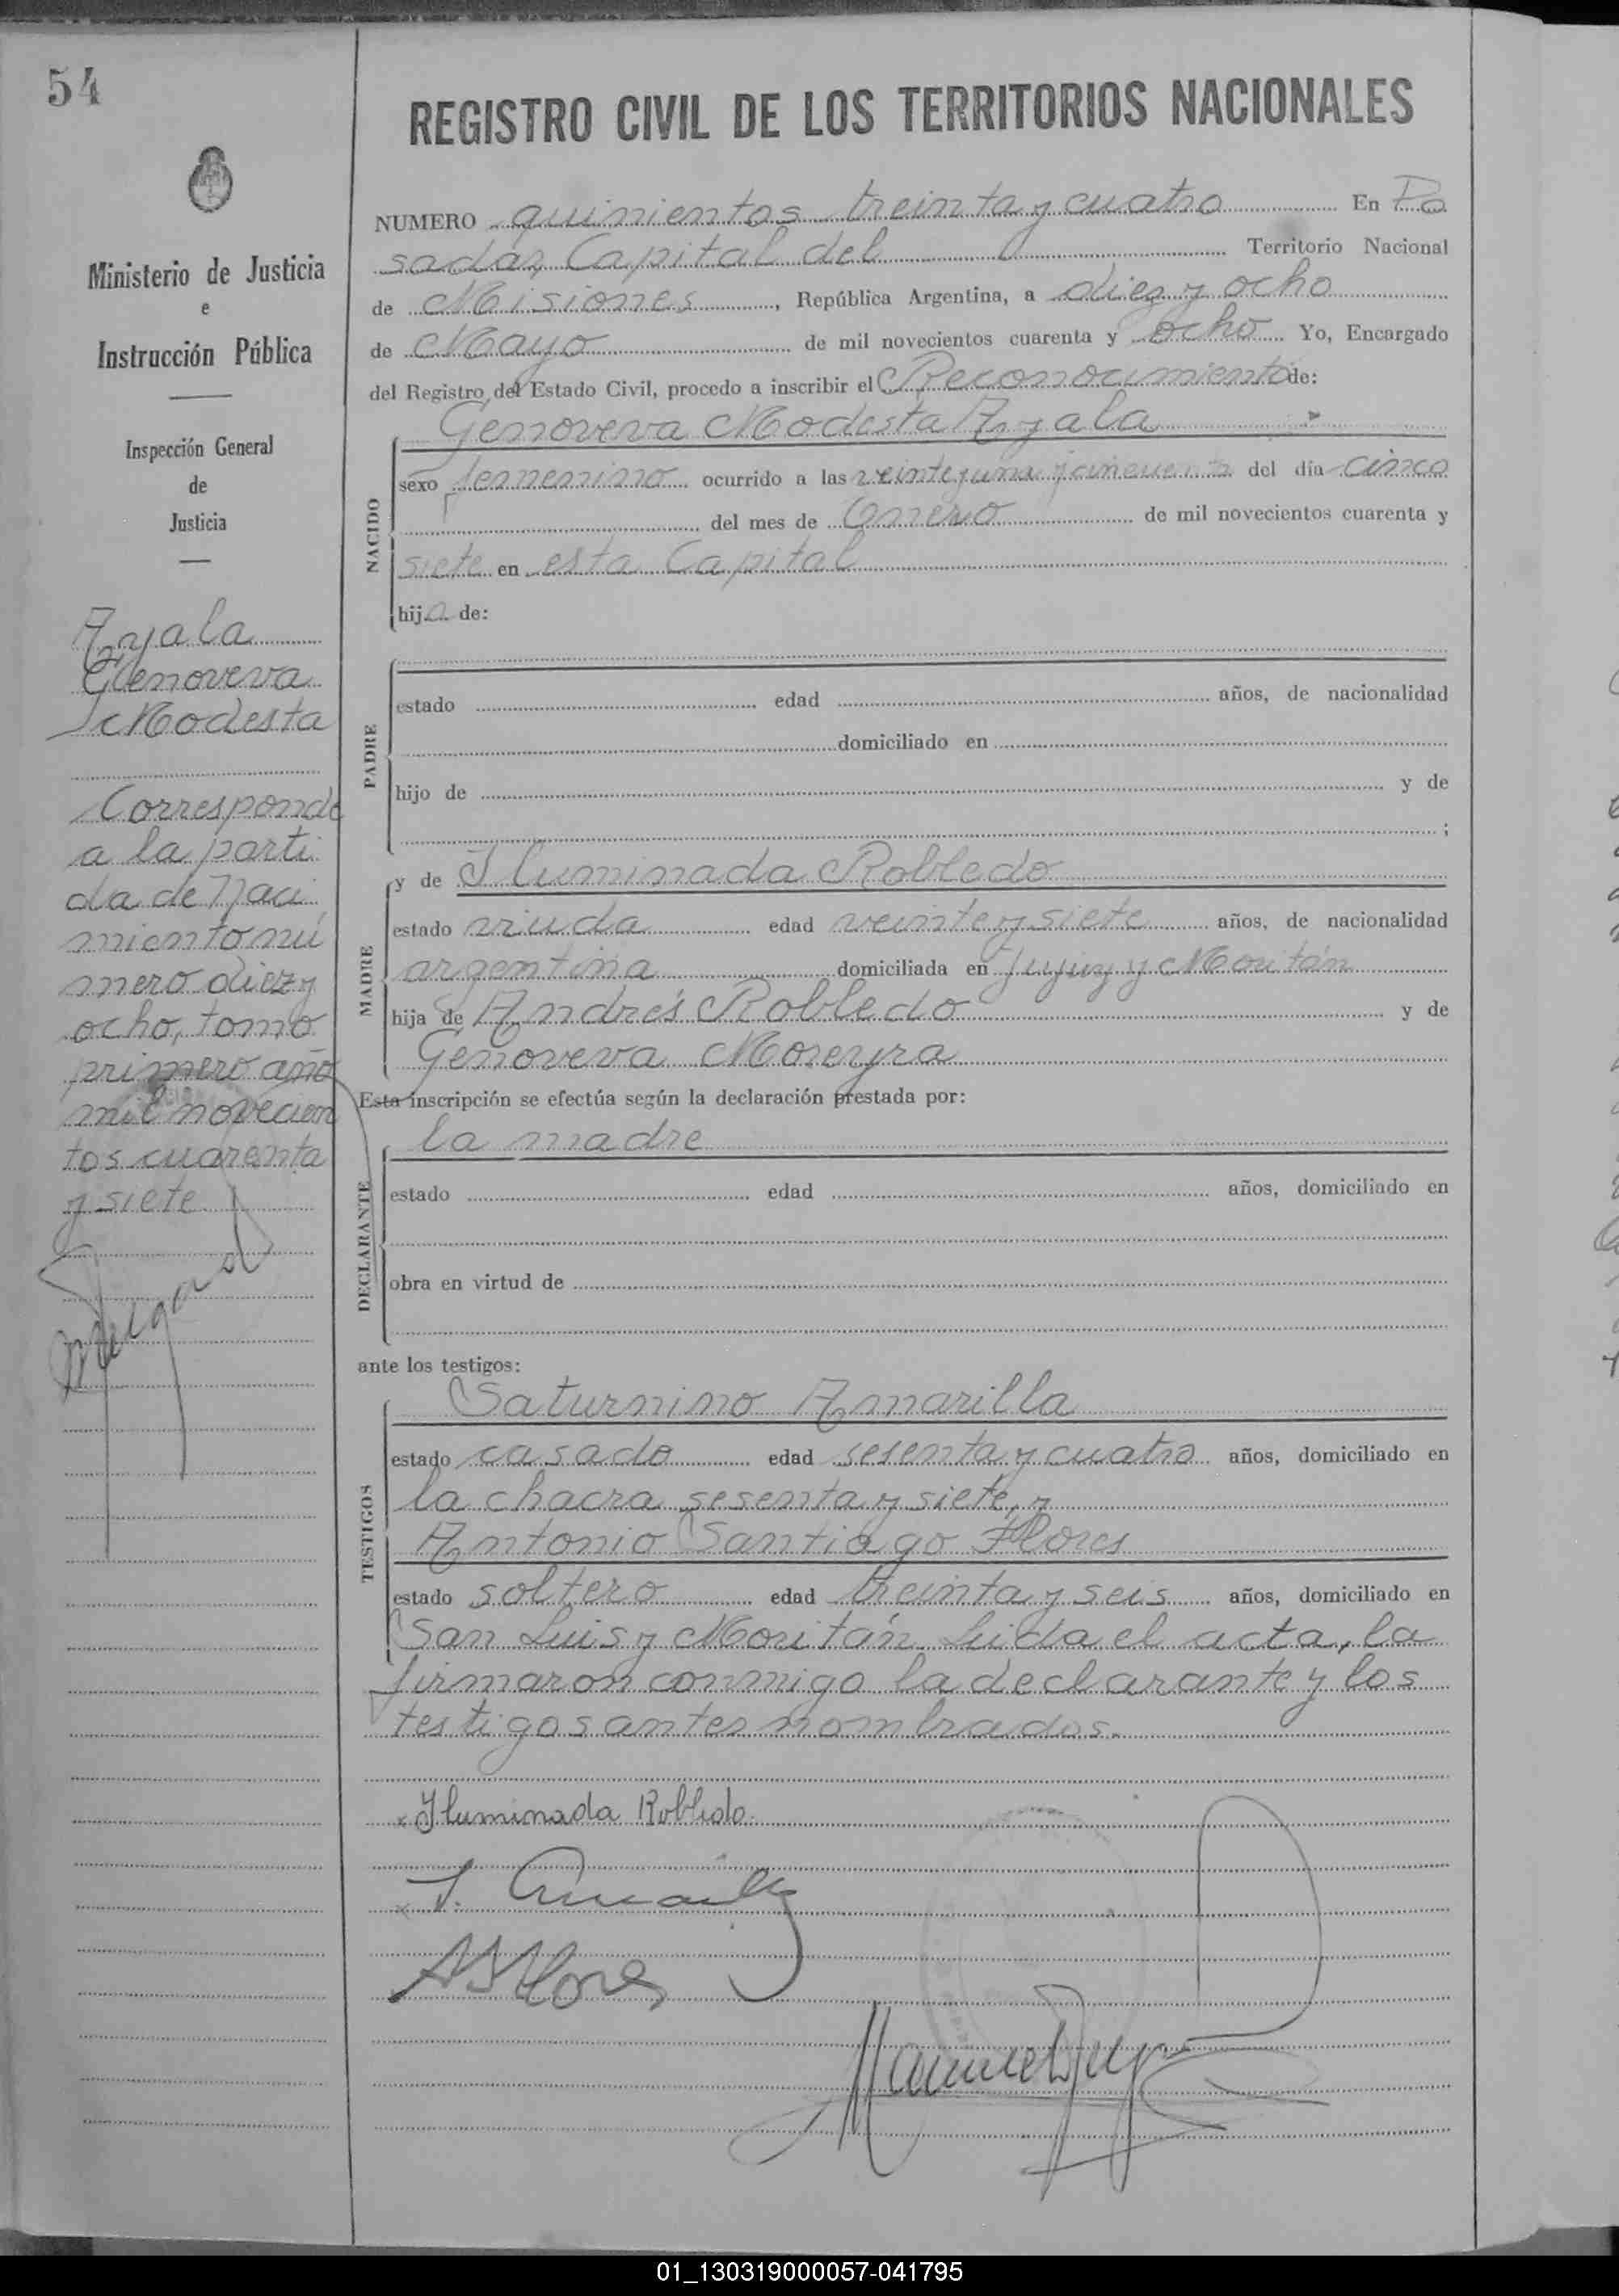 54
Ministerio de Justicia
e
Instrucción Pública
Inspección General
de
Justicia
Ayala
Genoveva
Modesta
Corresponde
a la parti
da de Naci
miento nú
mero diez y
ocho, tomo
primero año
mil novecien
tos cuarenta
y siete
REGISTRO CIVIL DE LOS TERRITORIOS NACIONALES
NUMERO quinientos treinta y cuatro En Po
sadas, Capital del Territorio Nacional
de Misiones, República Argentina, a diez y ocho
de Mayo de mil novecientos cuarenta y ocho Yo, Encargado
del Registro del Estado Civil, procedo a inscribir el Reconocimiento de:
Genoveva Modesta Ayala
NACIDO
sexo femenino ocurrido a las veinte y una y cincuenta del día cinco
del mes de Enero de mil novecientos cuarenta y
siete en esta Capital
hija de:
PADRE
estado edad años, de nacionalidad
domiciliado en
hijo de y de
;
MADRE
y de Iluminada Robledo
estado viuda edad veinte y siete años, de nacionalidad
argentina domiciliada en Jujuy y Moritán
hija de Andrés Robledo y de
Genoveva Moreyra
Esta inscripción se efectúa según la declaración prestada por:
DECLARANTE
la madre
estado edad años, domiciliado en
obra en virtud de
ante los testigos:
TESTIGOS
Saturnino Amarilla
estado casado edad sesenta y cuatro años, domiciliado en
la chacra sesenta y siete, y
Antonio Santiago Flores
estado soltero edad treinta y seis años, domiciliado en
San Luis y Moritán. Leida el acta, la
firmaron conmigo la declarante y los
testigos antes nombrados.
x Iluminada Robledo.
x S. Amarilla
A S Flores
01_130319000057-041795